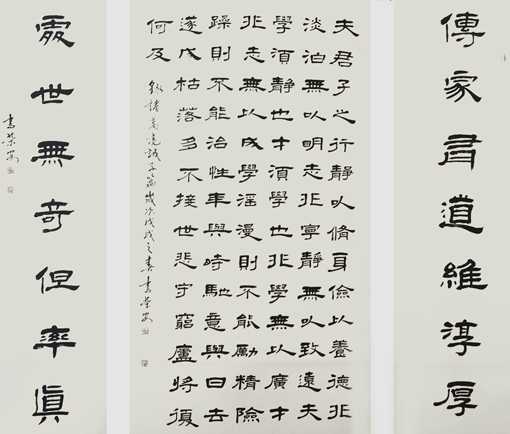 傳家尋道維淳厚
夫君子之行靜以脩身儉以養德非
淡泊無以明志非寧靜無以致遠夫
學須靜也才須學也非學無以廣才
非志無以成學淫漫則不能勵精險
躁則不能治性年與時馳意與日去
遂成枯落多不接世悲守窮廬將復
何及
錄諸葛亮誡子篇歲次戊戌之春
處世無奇但率眞